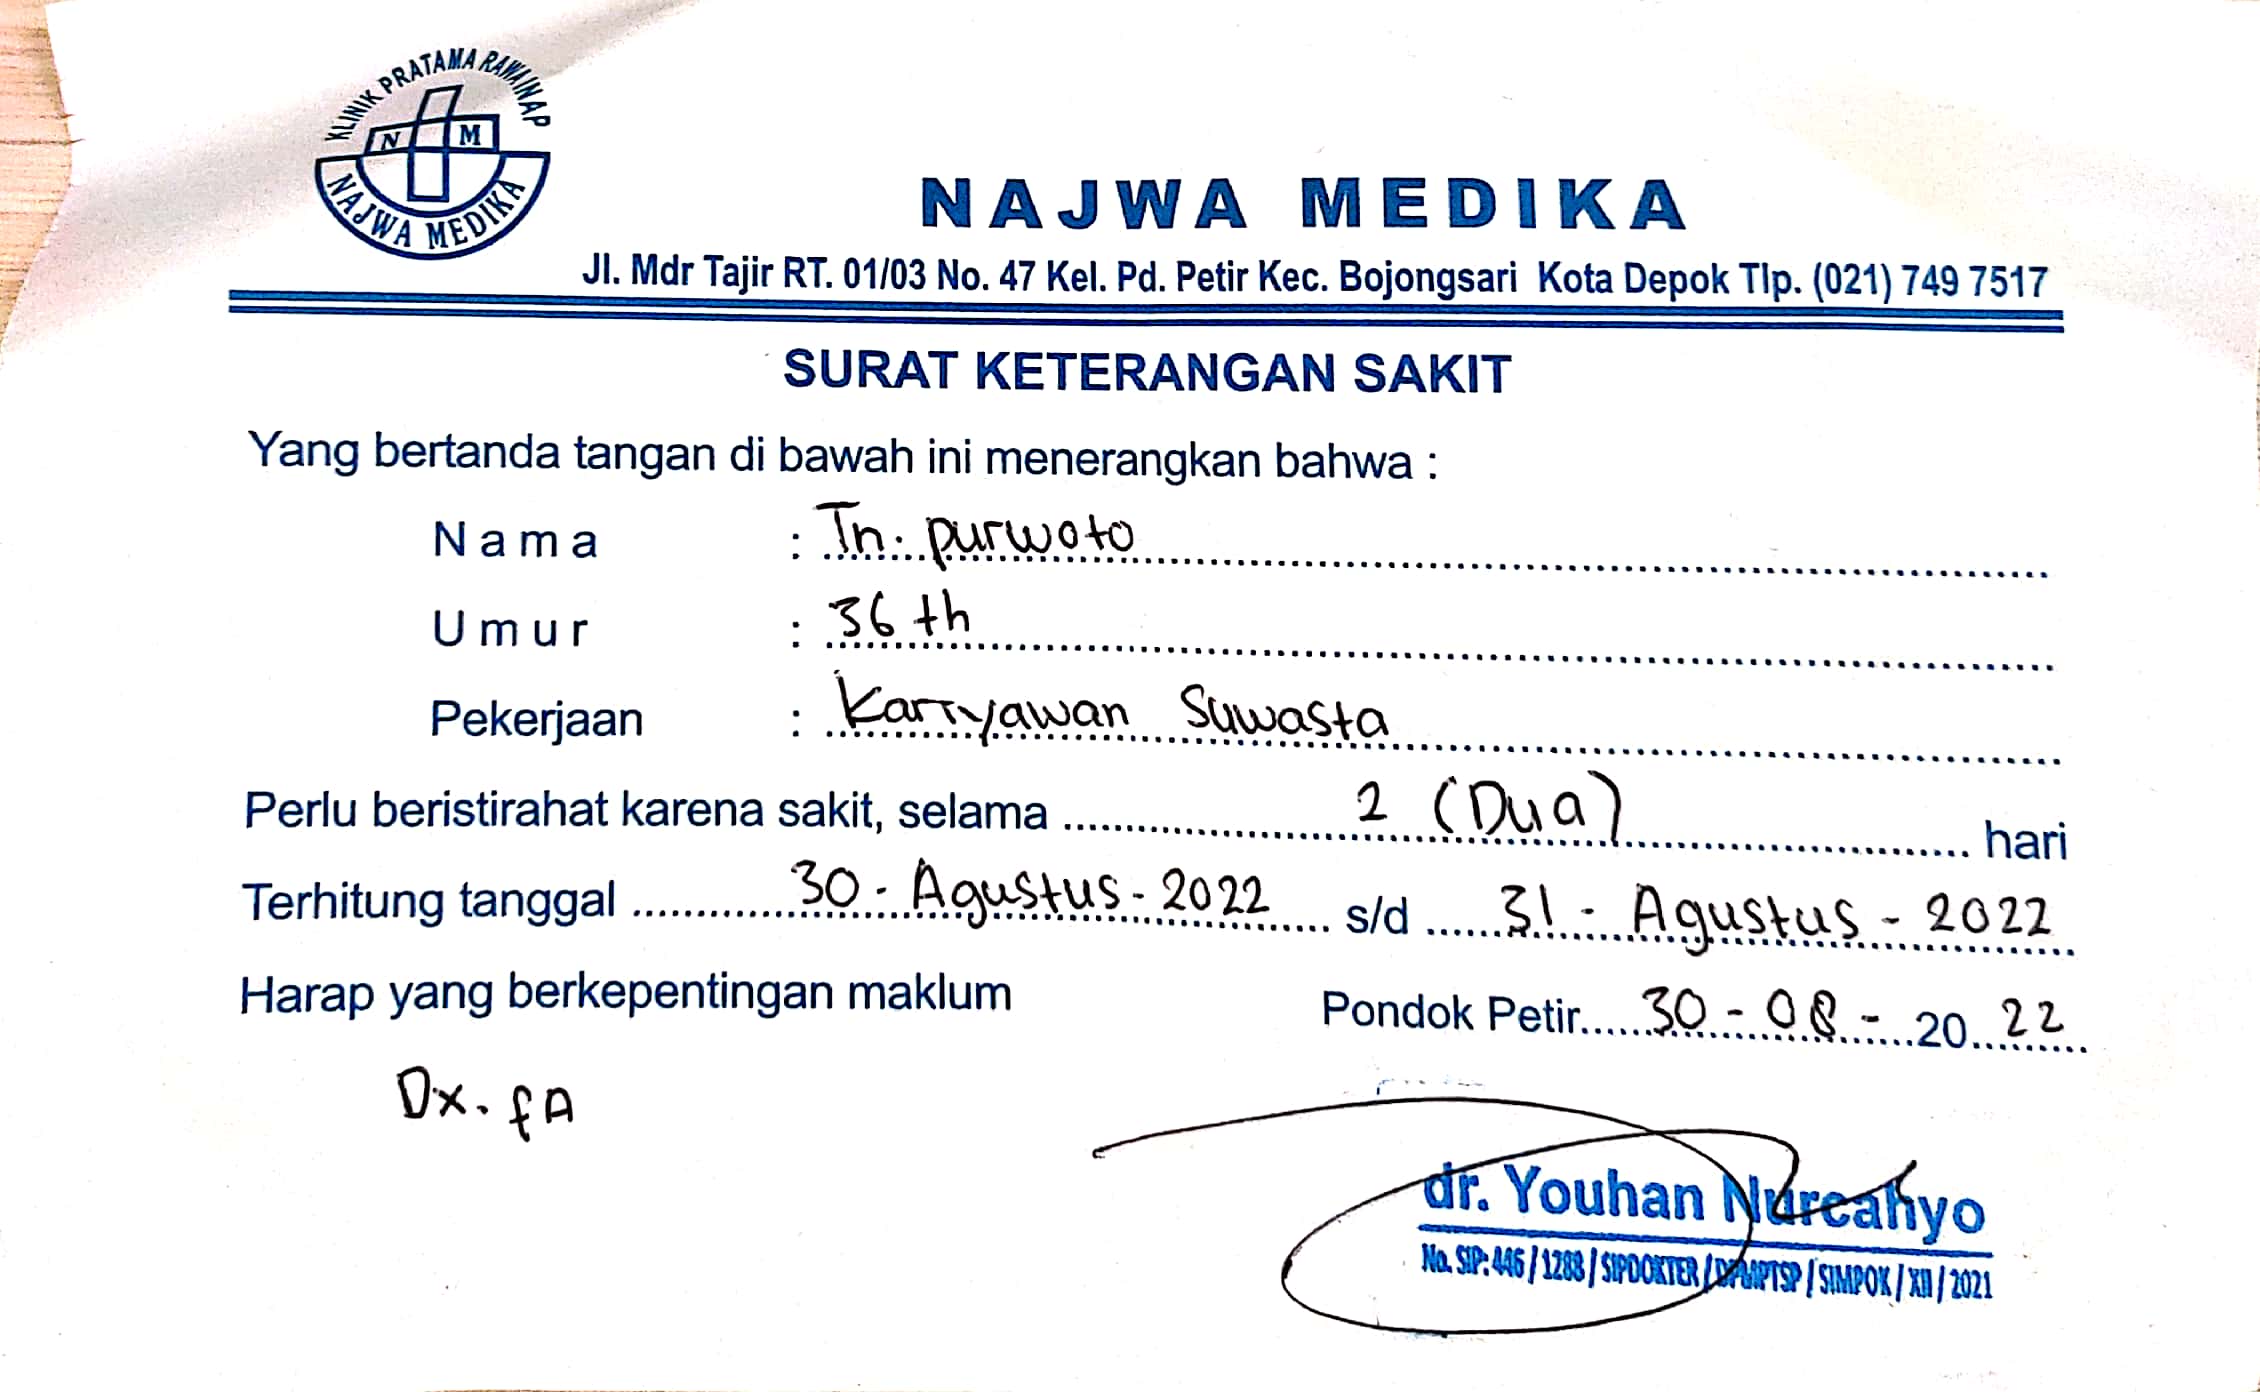 KLINIK PRATAMA RAWAINAP
N M
NAJWA MEDIKA
NAJWA MEDIKA
Jl. Mdr Tajir RT. 01/03 No. 47 Kel. Pd. Petir Kec. Bojongsari Kota Depok Tlp. (021) 749 7517
SURAT KETERANGAN SAKIT
Yang bertanda tangan di bawah ini menerangkan bahwa :
Nama : Tn. purwoto
Umur : 36 th
Pekerjaan : Karyawan Suwasta
Perlu beristirahat karena sakit, selama 2 (Dua) hari
Terhitung tanggal 30 - Agustus - 2022 s/d 31 - Agustus - 2022
Harap yang berkepentingan maklum
Pondok Petir 30 - 08 - 20 22
Dx. fA
dr. Youhan Nurcahyo
No. SIP: 446 / 1288 / SIPDOKTER / DPMPTSP / SIMPOK / XII / 2021